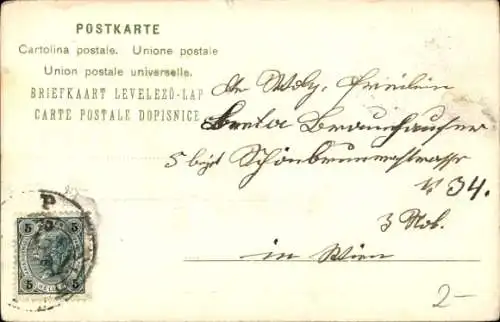 POSTKARTE
Cartolina postale. Unione postale
Union postale universelle.
BRIEFKAART LEVELEZŐ-LAP
CARTE POSTALE DOPISNICE
Fräulein
Berta Braunhauser
5 bezt Schönbrunnerstrasse
N 34.
3
in Wien
5 5
5 5
2-